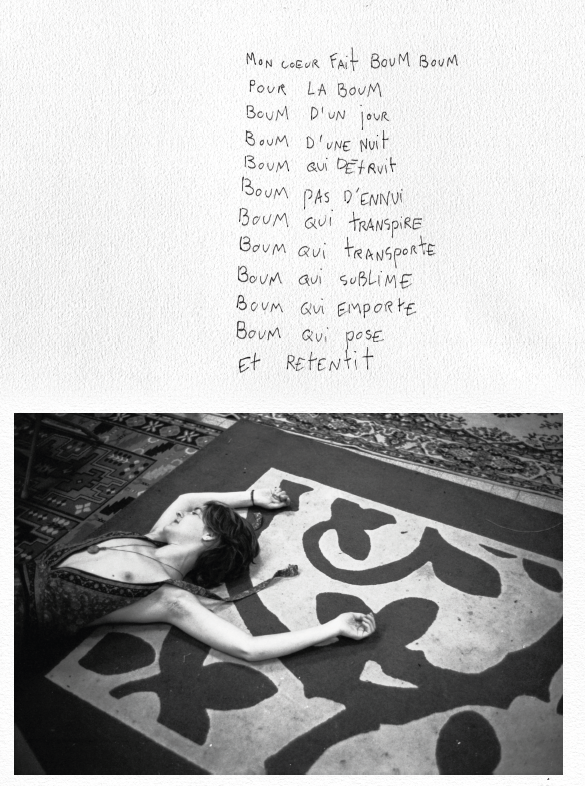 MON COEUR FAit BOUM BOUM
POUR LA BOUM
BOUM D'UN jOUR
BOUM D'UNE NUit
BOUM QUi DÉtRUit
BOUM PAS D'ENNUi
BOUM QUi tRANSPiRE
BOUM QUi tRANSPORtE
BOUM QUi SUBLiME
BOUM QUi EMPORtE
BOUM QUi POSE
Et REtENtit